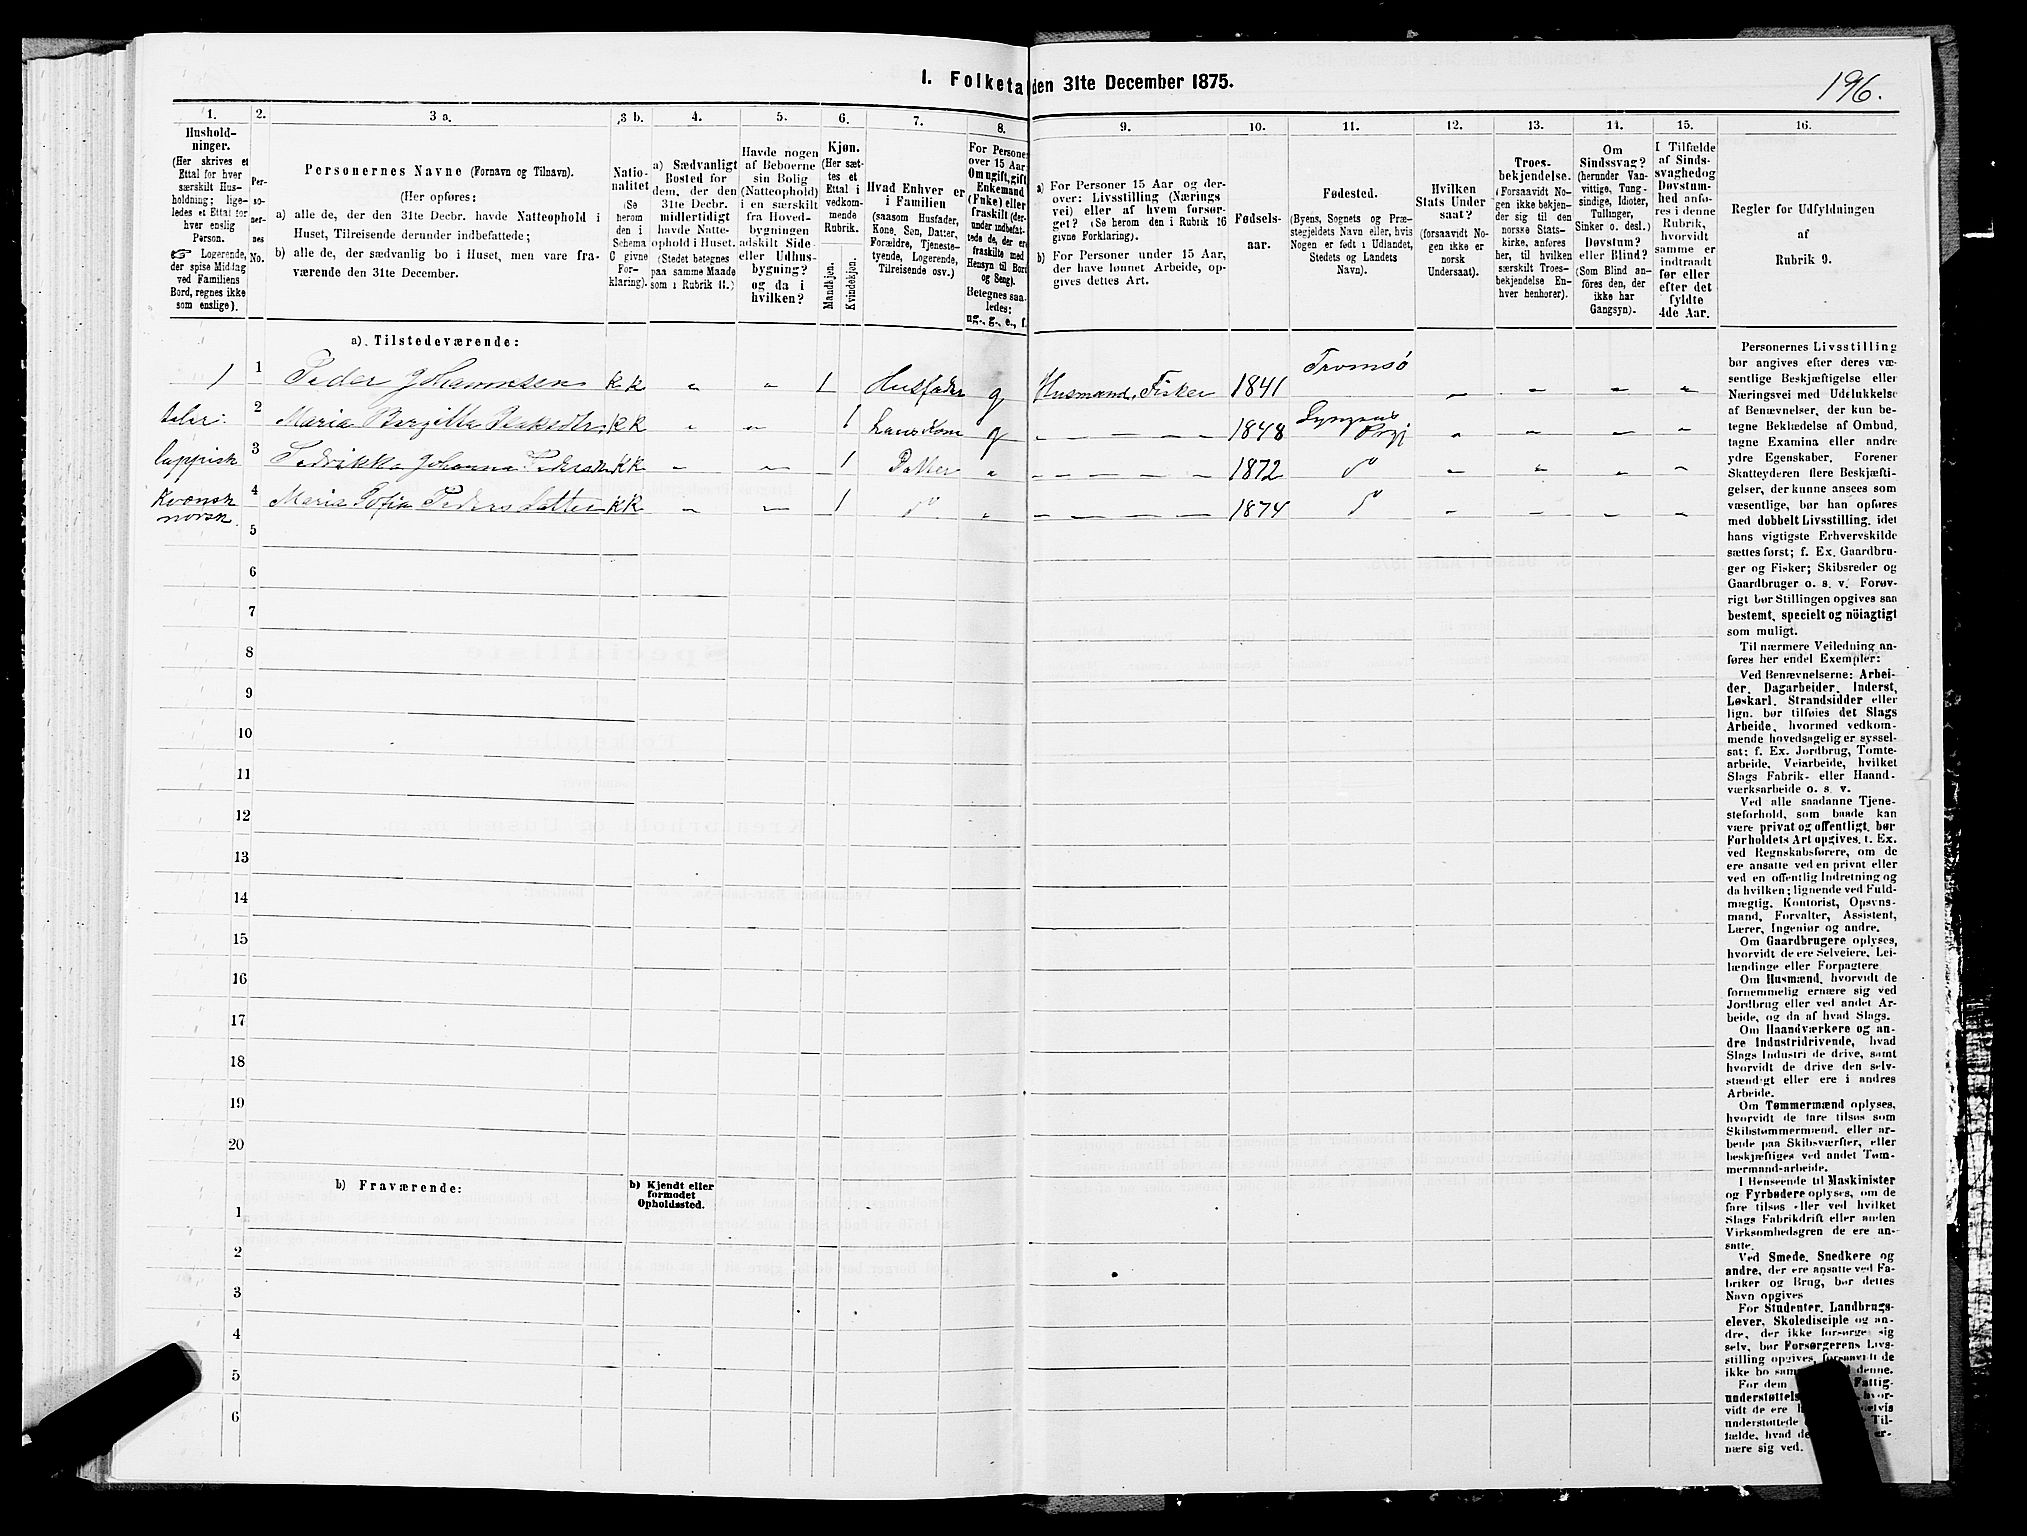 I. Folketal den 31te December 1875.
196.
1.
Hushold-
ninger.
(Her skrives et
Ettal for hver
særskilt Hus-
holdning; lige-
ledes et Ettal for
hver enslig
Person.
☞ Logerende,
der spise Middag
ved Familiens
Bord, regnes ikke
som enslige).
2.
Per-
so-
ner-
nes
No.
3 a.
Personernes Navne (Fornavn og Tilnavn).
(Her opføres:
a) alle de, der den 31te Decbr. havde Natteophold i
Huset, Tilreisende derunder indbefattede;
b) alle de, der sædvanlig bo i Huset, men vare fra-
værende den 31te December.
3 b.
Natio-
nalitet
(Se
herom
den i
Schema
C givne
For-
klaring).
4.
a) Sædvanligt
Bosted for
dem, der den
31te Decbr.
midlertidigt
havde Natte-
ophold i Huset.
(Stedet betegnes
paa samme Maade
som i Rubrik 11.)
5.
Havde nogen
af Beboerne
sin Bolig
(Natteophold)
i en særskilt
fra Hoved-
bygningen
adskilt Side-
eller Udhus-
bygning?
og da i
hvilken?
6.
Kjøn.
(Her sæt-
tes et
Ettal i
vedkom-
mende
Rubrik.
Mandkjøn.
Kvindekjøn.
7.
Hvad Enhver er
i Familien
(saasom Husfader,
Kone, Søn, Datter,
Forældre, Tjeneste-
tyende, Logerende,
Tilreisende osv.)
8.
For Personer
over 15 Aar:
Om ugift, gift,
Enkemand
(Enke) eller
fraskilt (der-
under indbefat-
tede de, der ere
fraskilte med
Hensyn til Bord
og Seng).
Betegnes saa-
ledes:
ug., g., e., f.
9.
a) For Personer 15 Aar og der-
over: Livsstilling (Nærings
vei) eller af hvem forsør-
get? (Se herom den i Rubrik 16
givne Forklaring).
b) For Personer under 15 Aar,
der have lønnet Arbeide, op-
gives dettes Art.
10.
Fødsels-
aar.
11.
Fødested.
(Byens, Sognets og Præ-
stegjeldets Navn eller, hvis
Nogen er født i Udlandet,
Stedets og Landets
Navn).
12.
Hvilken
Stats Under
saat?
(forsaavidt No-
gen ikke er
norsk
Undersaat).
13.
Troes-
bekjendelse.
(Forsaavidt No-
gen ikke bekjen-
der sig til den
norske Stats-
kirke, anføres
her, til hvilken
særskilt Troes-
bekjendelse En-
hver henhører).
14.
Om
Sindssvag?
(herunder Van-
vittige, Tung-
sindige, Idioter,
Tullinger,
Sinker o. desl.)
Døvstum?
eller Blind?
(Som Blind an-
føres den, der
ikke har
Gangsyn).
15.
I Tilfælde
af Sinds-
svaghed og
Døvstum-
hed anfø-
res i denne
Rubrik,
hvorvidt
samme er
indtraadt
før eller
efter det
fyldte
4de Aar.
16.
Regler for Udfyldningen
af
Rubrik 9.
a). Tilstedeværende:
1 1 Peder Johannesen KK „ „ 1 Husfader g Husmand, Fisker 1841 Tromsø „ – – „
taler: 2 Maria Bergitta KK „ „ 1 hans Kone g „ – – – – 1848 Lyngens Prgj „ – – –
lappisk 3 Fedrikka Johanna KK „ „ 1 Datter „ – – – – – 1872 do – – – –
Kvænsk 4 Maria Sofia Pedersdatter KK – – 1 do „ – – – – – 1874 do – – – –
norsk.
5
6
7
8
9
10
11
12
13
14
15
16
17
18
19
20
b) Fraværende:
b) Kjendt eller
formodet
Opholdssted.
1
2
3
4
5
6
Personernes Livsstilling
bør angives efter deres væ-
sentlige Beskjæftigelse eller
Næringsvei med Udelukkelse
af Benævnelser, der kun be-
tegne Beklædelse af Ombud,
tagne Examina eller andre
ydre Egenskaber. Forener
Skatteyderen flere Beskjæfti-
gelser, der kunne ansees som
væsentlige, bør han opføres
med dobbelt Livsstilling, idet
hans vigtigste Erhvervskilde
sættes først; f. Ex. Gaardbru-
ger og Fisker; Skibsreder og
Gaardbruger o. s. v. Forøv-
rigt bør Stillingen opgives saa
bestemt, specielt og nöiagtigt
som muligt.
Til nærmere Veiledning an-
føres her endel Exempler:
Ved Benævnelserne: Arbei-
der, Dagarbeider, Inderst,
Løskarl, Strandsidder eller
lign. bør tilføies det Slags
Arbeide, hvormed vedkom-
mende hovedsagelig er syssel-
sat; f. Ex. Jordbrug, Tomte-
arbeide, Veiarbeide, hvilket
Slags Fabrik- eller Haand-
værksarbeide o. s. v.
Ved alle saadanne Tjene-
steforhold, som baade kan
være privat og offentligt, bør
Forholdets Art opgives, t. Ex.
ved Regnskabsførere, om de
ere ansatte ved en privat eller
ved en offentlig Indretning og
da hvilken; lignende ved Fuld-
mægtig, Kontorist, Opsyns-
mand, Forvalter, Assistent,
Lærer, Ingeniør og andre.
Om Gaardbrugere oplyses,
hvorvidt de ere Selveiere, Lei-
lændinge eller Forpagtere
Om Husmænd, hvorvidt de
fornemmelig ernære sig ved
Jordbrug eller ved andet Ar-
beide, og da af hvad Slags.
Om Haandværkere og an-
dre Industridrivende, hvad
Slags Industri de drive, samt
hvorvidt de drive den selv-
stændigt eller ere i andres
Arbeide.
Om Tømmermænd oplyses,
hvorvidt de fare tilsøs som
Skibstømmermænd, eller ar-
beide paa Skibsværfter, eller
beskjæftiges ved andet Tøm-
mermand-arbeide.
I Henseende til Maskinister
og Fyrbødere oplyses, om de
fare tilsøs eller ved hvilket
Slags Fabrikdrift eller anden
Virksomhedsgren de ere an-
satte.
Ved Smede, Snedkere og
andre, der ere ansatte ved Fa-
briker og Brug, bør dettes
Navn opgives
For Studenter, Landbrugs-
elever, Skoledisciple og an-
dre, der ikke forsørge sig
selv, bør Forsørgerens Livs-
stilling opgives, forsaavidt de
ikke bo sammen med denne.
For dem Fattig-
understøttelse hvor-
vidt de ere
understøttede Til-
fælde, hvad de er-
nære sig ved.